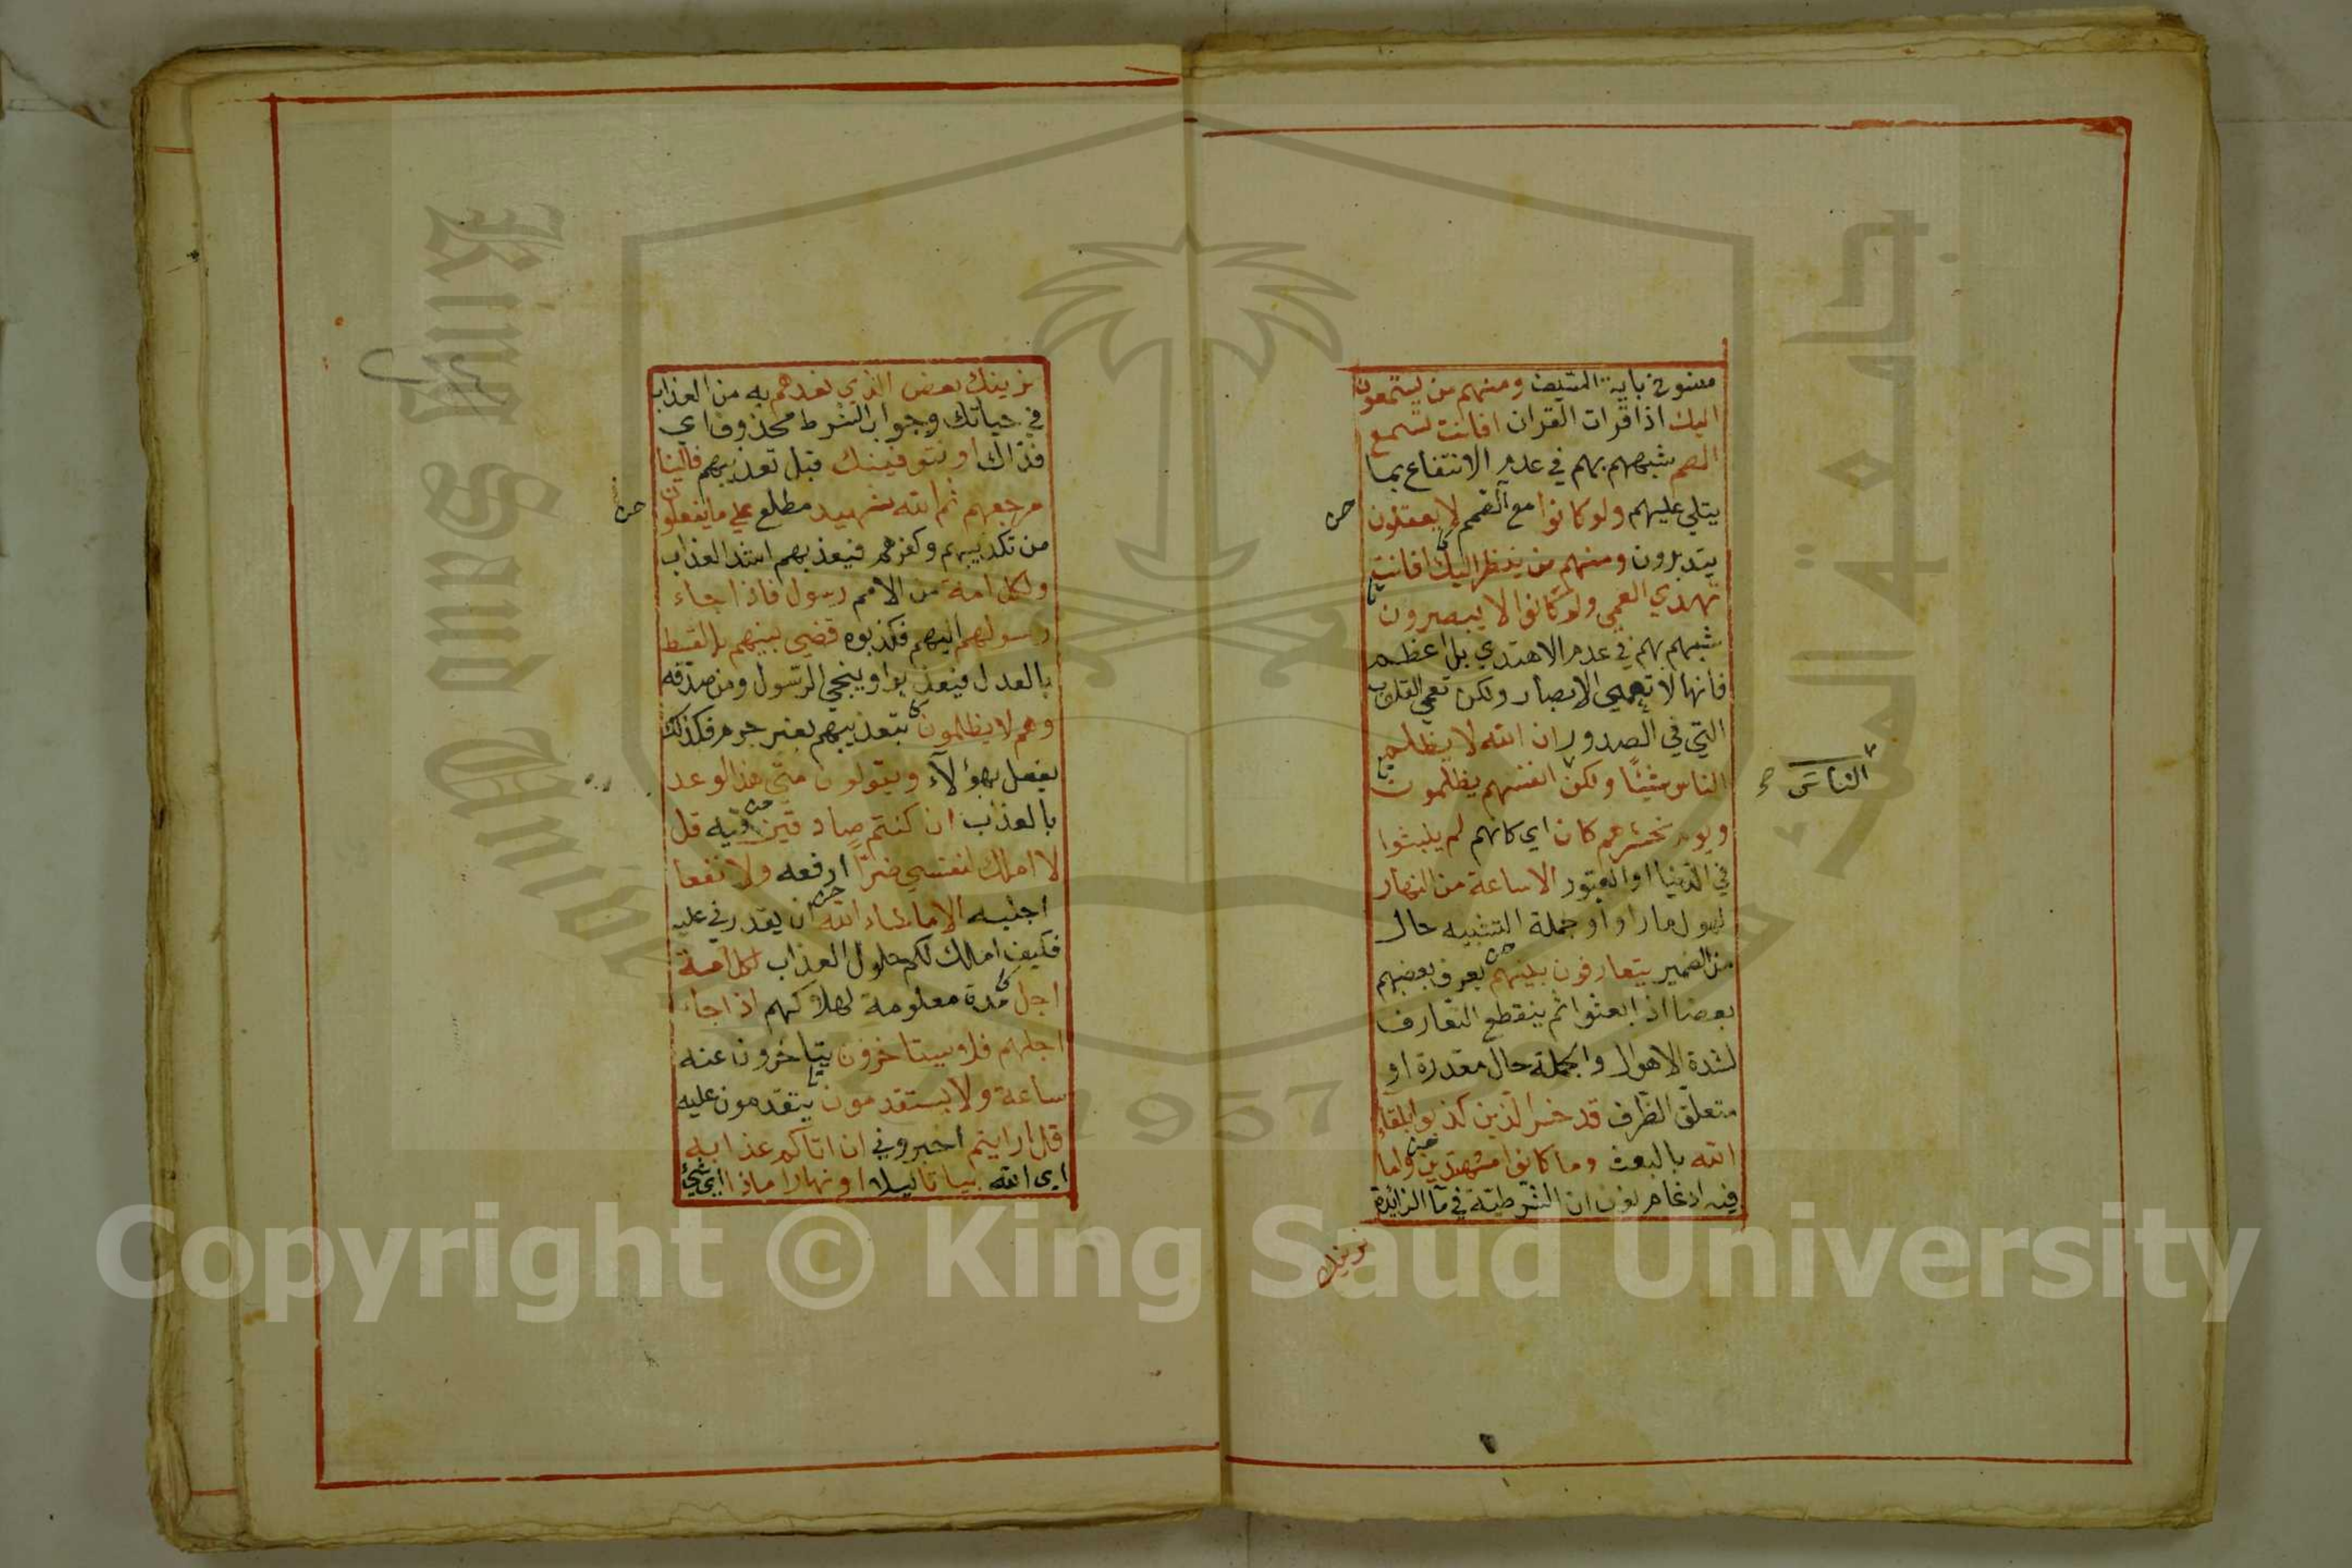 منسوخ باية السيف ومنهم من يستمعون
اليك اذا قرات القران افانت تسمع
الصم شبههم بهم في عدم الانتفاع بما
يتلي عليهم ولو كانوا مع الصمم لا يعقلون
يتدبرون ومنهم من ينظر اليك افانت
تهدي العمي ولو كانوا لا يبصرون
شبههم بهم في عدم الاهتدي بل اعظم
فانها لا تعمي الابصار ولكن تعمي القلوب
التي في الصدور ان الله لا يظلم
الناس شيئا ولكن انفسهم يظلمون
الناس
ويوم نحشرهم كان اي كانهم لم يلبثوا
في الدنيا او القبور الا ساعة من النهار
لهول ما راوا وجملة التشبيه حال
من الضمير يتعارفون بينهم يعرف بعضهم
بعضا اذا بعثوا ثم ينقطع التعارف
لشدة الاهوال والجملة حال مقدرة او
متعلق الظرف قد خسر الذين كذبوا بلقاء
الله بالبعث وما كانوا مهتدين واما
فيه ادغام نون ان الشرطية في ما الزائدة
نرينك
نرينك بعض الذي نعدهم به من العذاب
في حياتك وجواب الشرط محذوف اي
فذاك او نتوفينك قبل تعذيبهم فالينا
مرجعهم ثم الله شهيد مطلع علي ما يفعلون
من تكذيبهم وكفرهم فيعذبهم اشد العذاب
ولكل امة من الامم رسول فاذا جاء
رسولهم اليهم فكذبوه قضي بينهم بالقسط
بالعدل فيعذبوا وينجي الرسول ومن صدقه
وهم لا يظلمون بتعذيبهم بغير جرم فكذلك
يفعل بهؤلاء ويقولون متي هذا الوعد
بالعذاب ان كنتم صادقين فيه قل
لا املك لنفسي ضرا ادفعه ولا نفعا
اجلبه الا ما شاء الله ان يقدرني عليه
فكيف املك لكم حلول العذاب لكل امة
اجل مدة معلومة لهلاكهم اذا جاء
اجلهم فلا يستاخرون يتاخرون عنه
ساعة ولا يستقدمون يتقدمون عليه
قل ارايتم اخبروني ان اتاكم عذابه
اي الله بياتا ليلا او نهارا ماذا اي شيئ
King Saud University
جامعة الملك
1957
Copyright © King Saud University